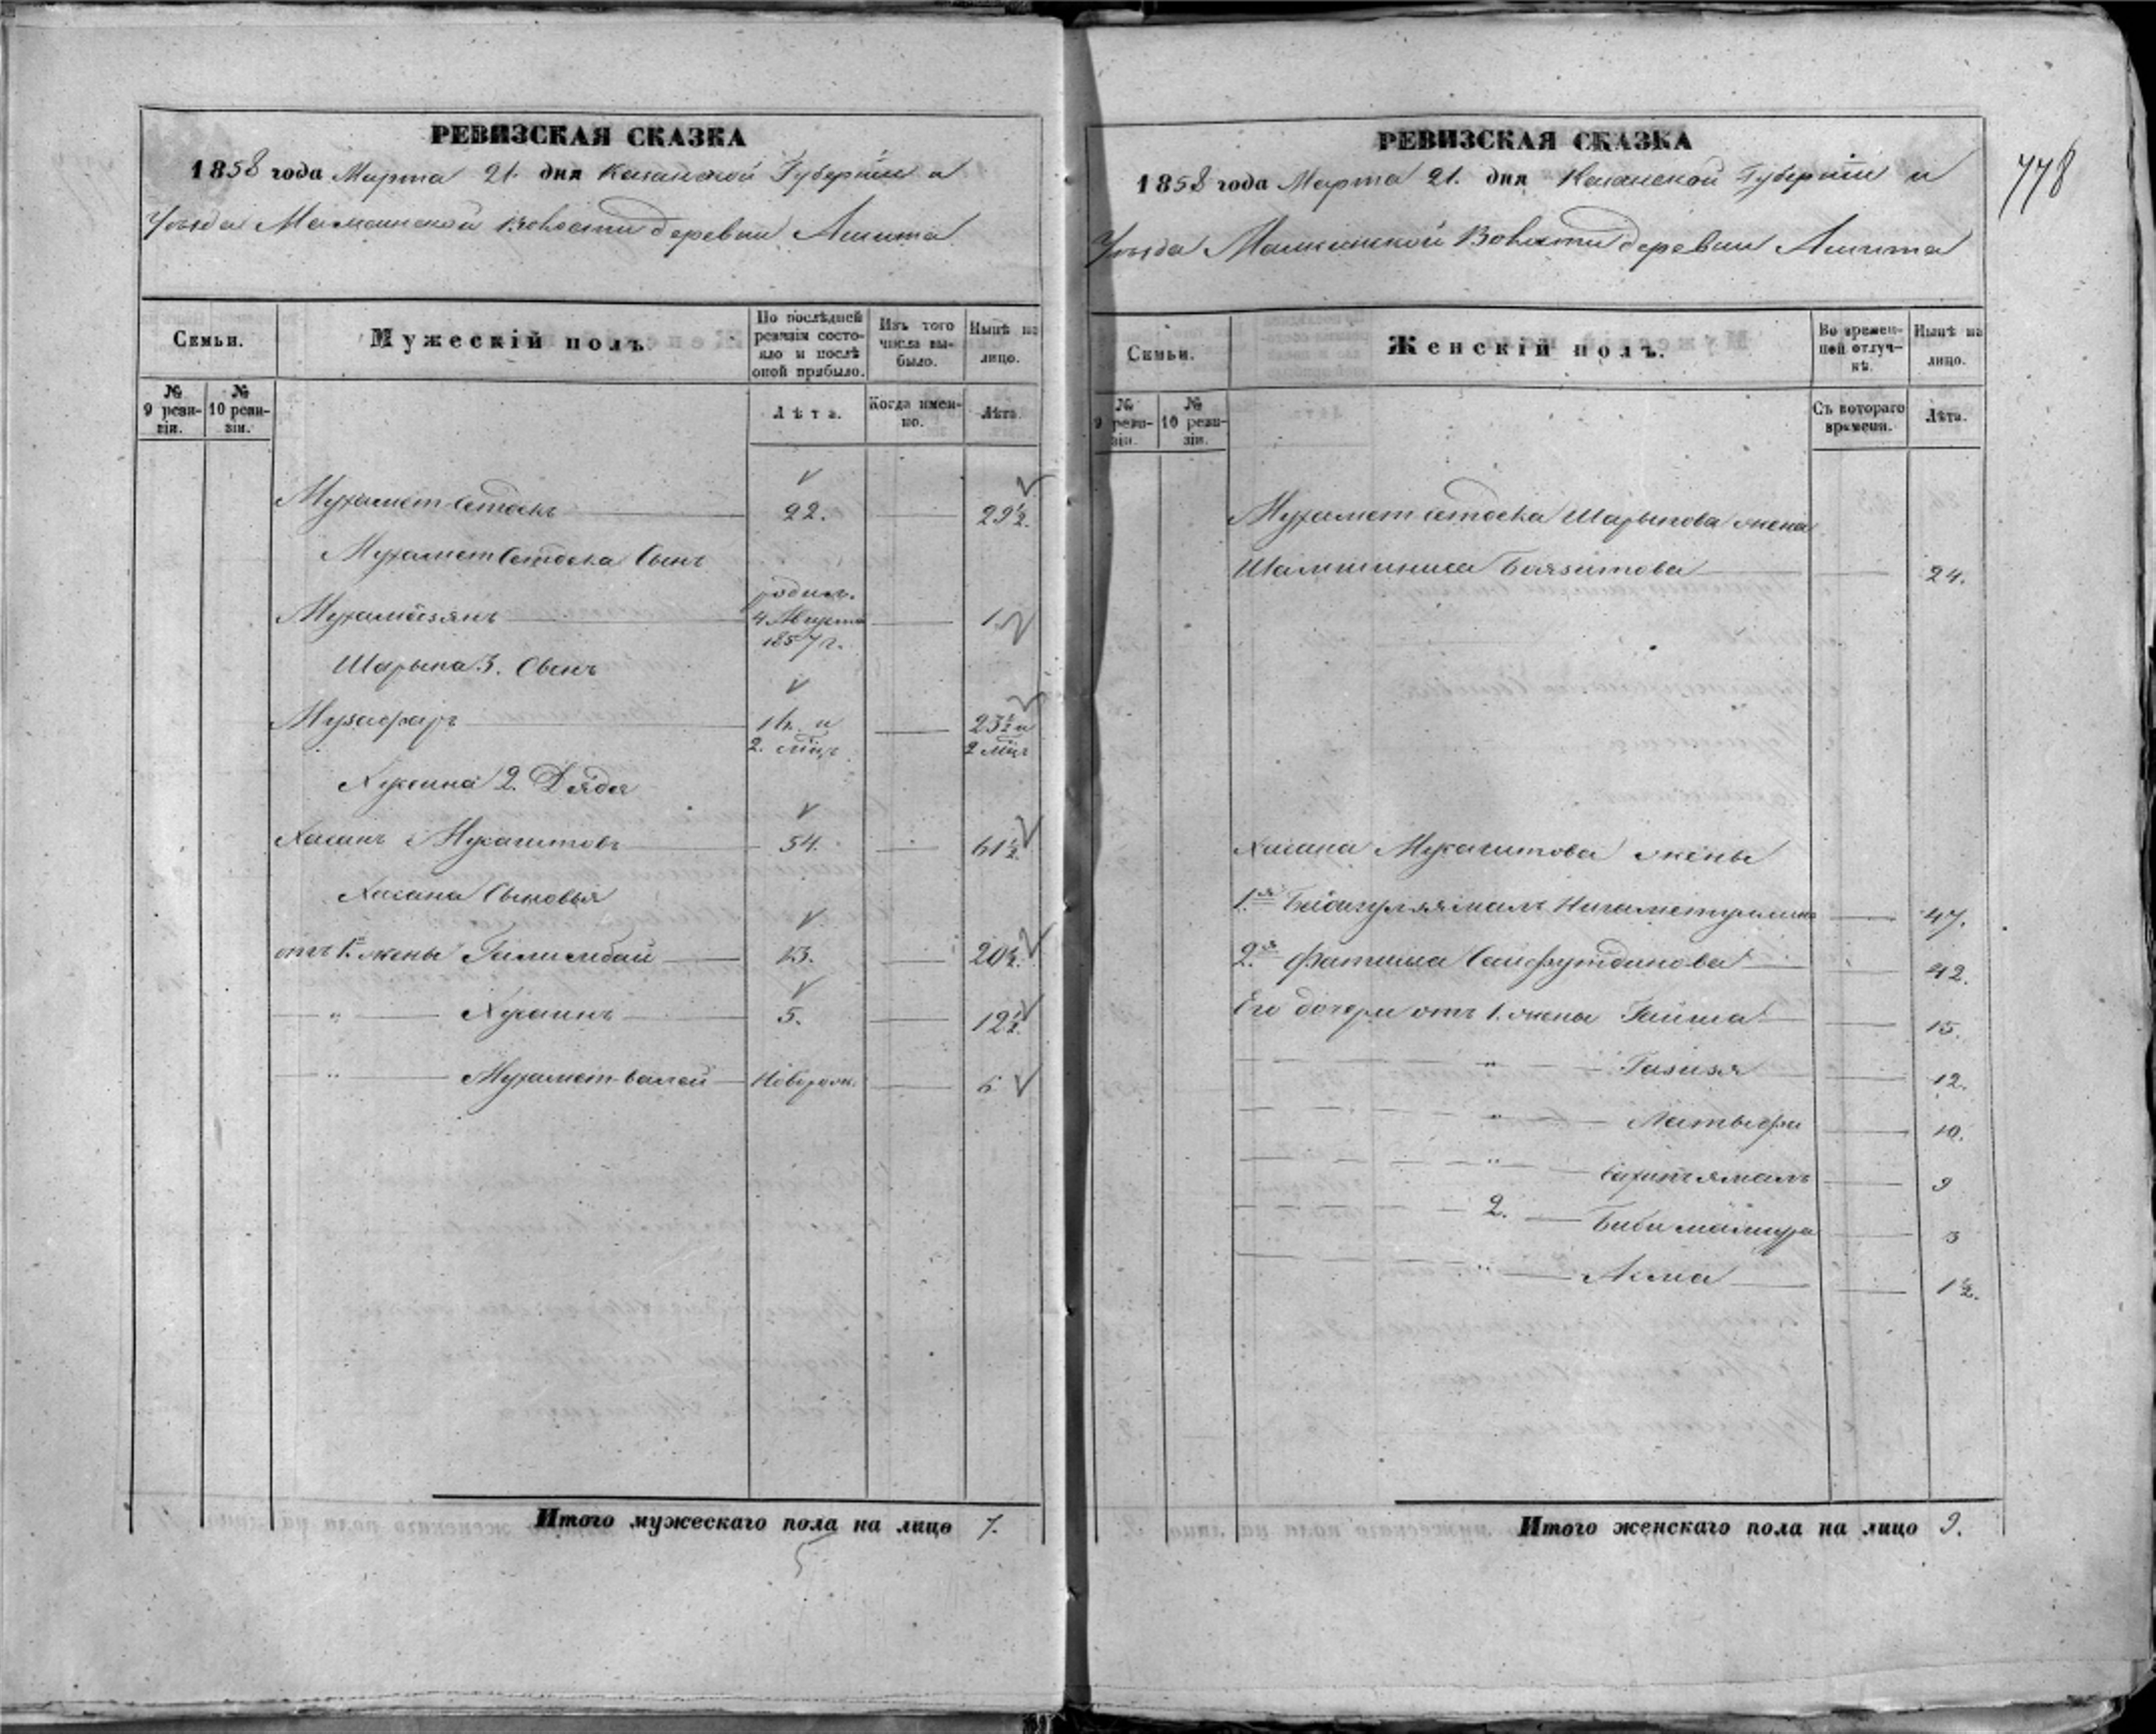 РЕВИЗСКАЯ СКАЗКА
1858 года Марта 21. дня Казанской Губернiи и
Уѣзда Мамсинской Волости деревни Ашита
Семьи.
Мужескiй полъ.
По послѣдней ревизiи состояло и послѣ оной прибыло.
Изъ того числа выбыло.
Нынѣ на лицо.
№ 9 ревизiи.
№ 10 ревизiи.
Лѣта.
Когда именно.
Лѣта.
Мухаметъ Сетдекъ 22. 29½.
Мухаметъ Сетдека Сынъ
Мухамѣзянъ родил. 4 Марта 1857 г. 1.
Шарыпа 3. Сынъ
Музафаръ 16. и 2. мѣц. 23½ и 2 мѣц.
Хусаина 2. Дядя
Хасанъ Мусагитовъ 54. 61½.
Хасана Сыновья
отъ 1й жены Галимбай 13. 20½.
" Хусаинъ 5. 12½.
" Мухаметъ-валей Новорож. 6.
Итого мужескаго пола на лицо 7.
РЕВИЗСКАЯ СКАЗКА
1858 года Марта 21. дня Казанской Губернiи и
Уѣзда Мамсинской Волости деревни Ашита
778
Семьи.
Женскiй полъ.
Во временной отлучкѣ.
Нынѣ на лицо.
№ 9 ревизiи.
№ 10 ревизiи.
Съ котораго времени.
Лѣта.
Мухаметъ Сетдека Шарыпова жена
Шамшиниса Баязитова 24.
Хасана Мусагитова жены
1.я Бибигулямалъ Нигаметуллина 47.
2.я Фатима Сайфутдинова 42.
Его дочери отъ 1. жены Гайша 15.
" Газизя 12.
" Латыфа 10.
" Бахитямалъ 9
2. Биби маһира 3
" Асма 1½.
Итого женскаго пола на лицо 9.